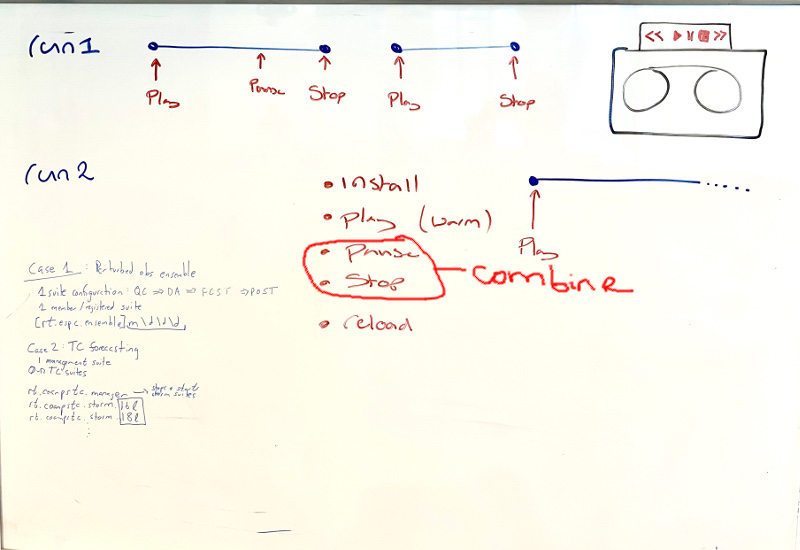 run1
Play
Pause
Stop
Play
Stop
run2
• install
• play (warm)
• Pause
• Stop
combine
• reload
Play
Case 1: Perturbed obs ensemble
1 suite configuration: QC => DA => FCST => POST
1 member/registered suite
[rt.espc.ensemble]m\d\d\d
Case 2: TC forecasting
1 management suite
0-n TC suites
rt.coampstc.manager → stops + starts storm suites
rt.coampstc.storm.16l
rt.coampstc.storm.18l